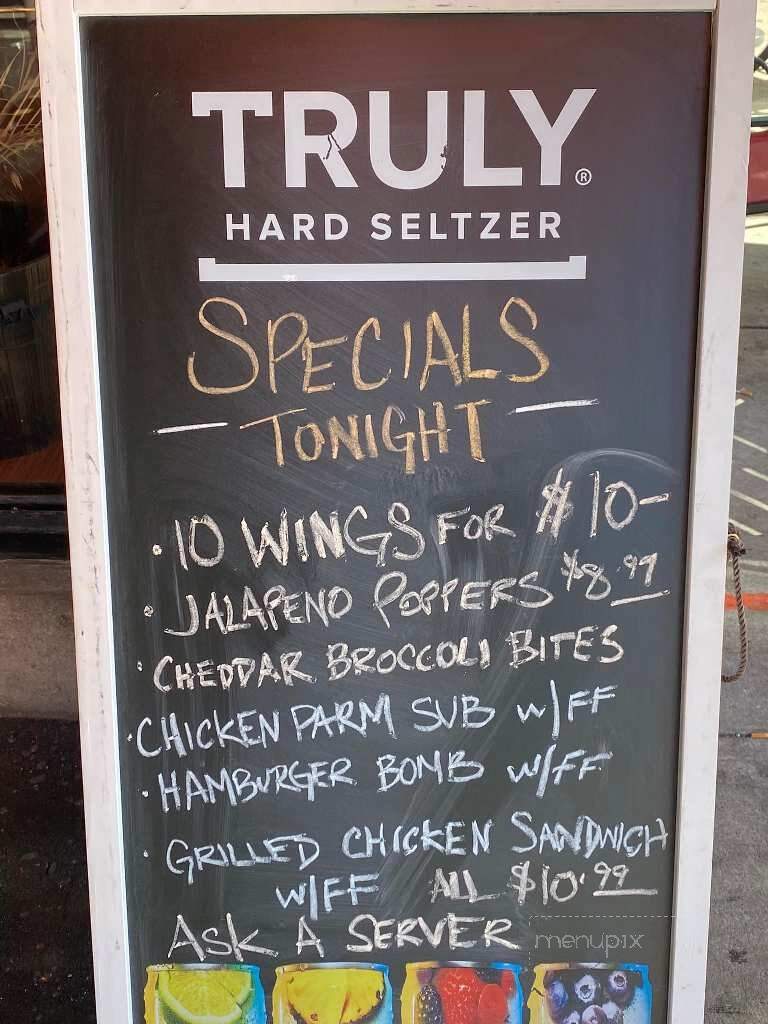 TRULY®
HARD SELTZER
SPECIALS
— TONIGHT —
· 10 WINGS FOR $10-
· JALAPENO POPPERS $8.99
· CHEDDAR BROCCOLI BITES
· CHICKEN PARM SUB W/FF
· HAMBURGER BOMB W/FF
· GRILLED CHICKEN SANDWICH
W/FF ALL $10.99
ASK A SERVER
menupix